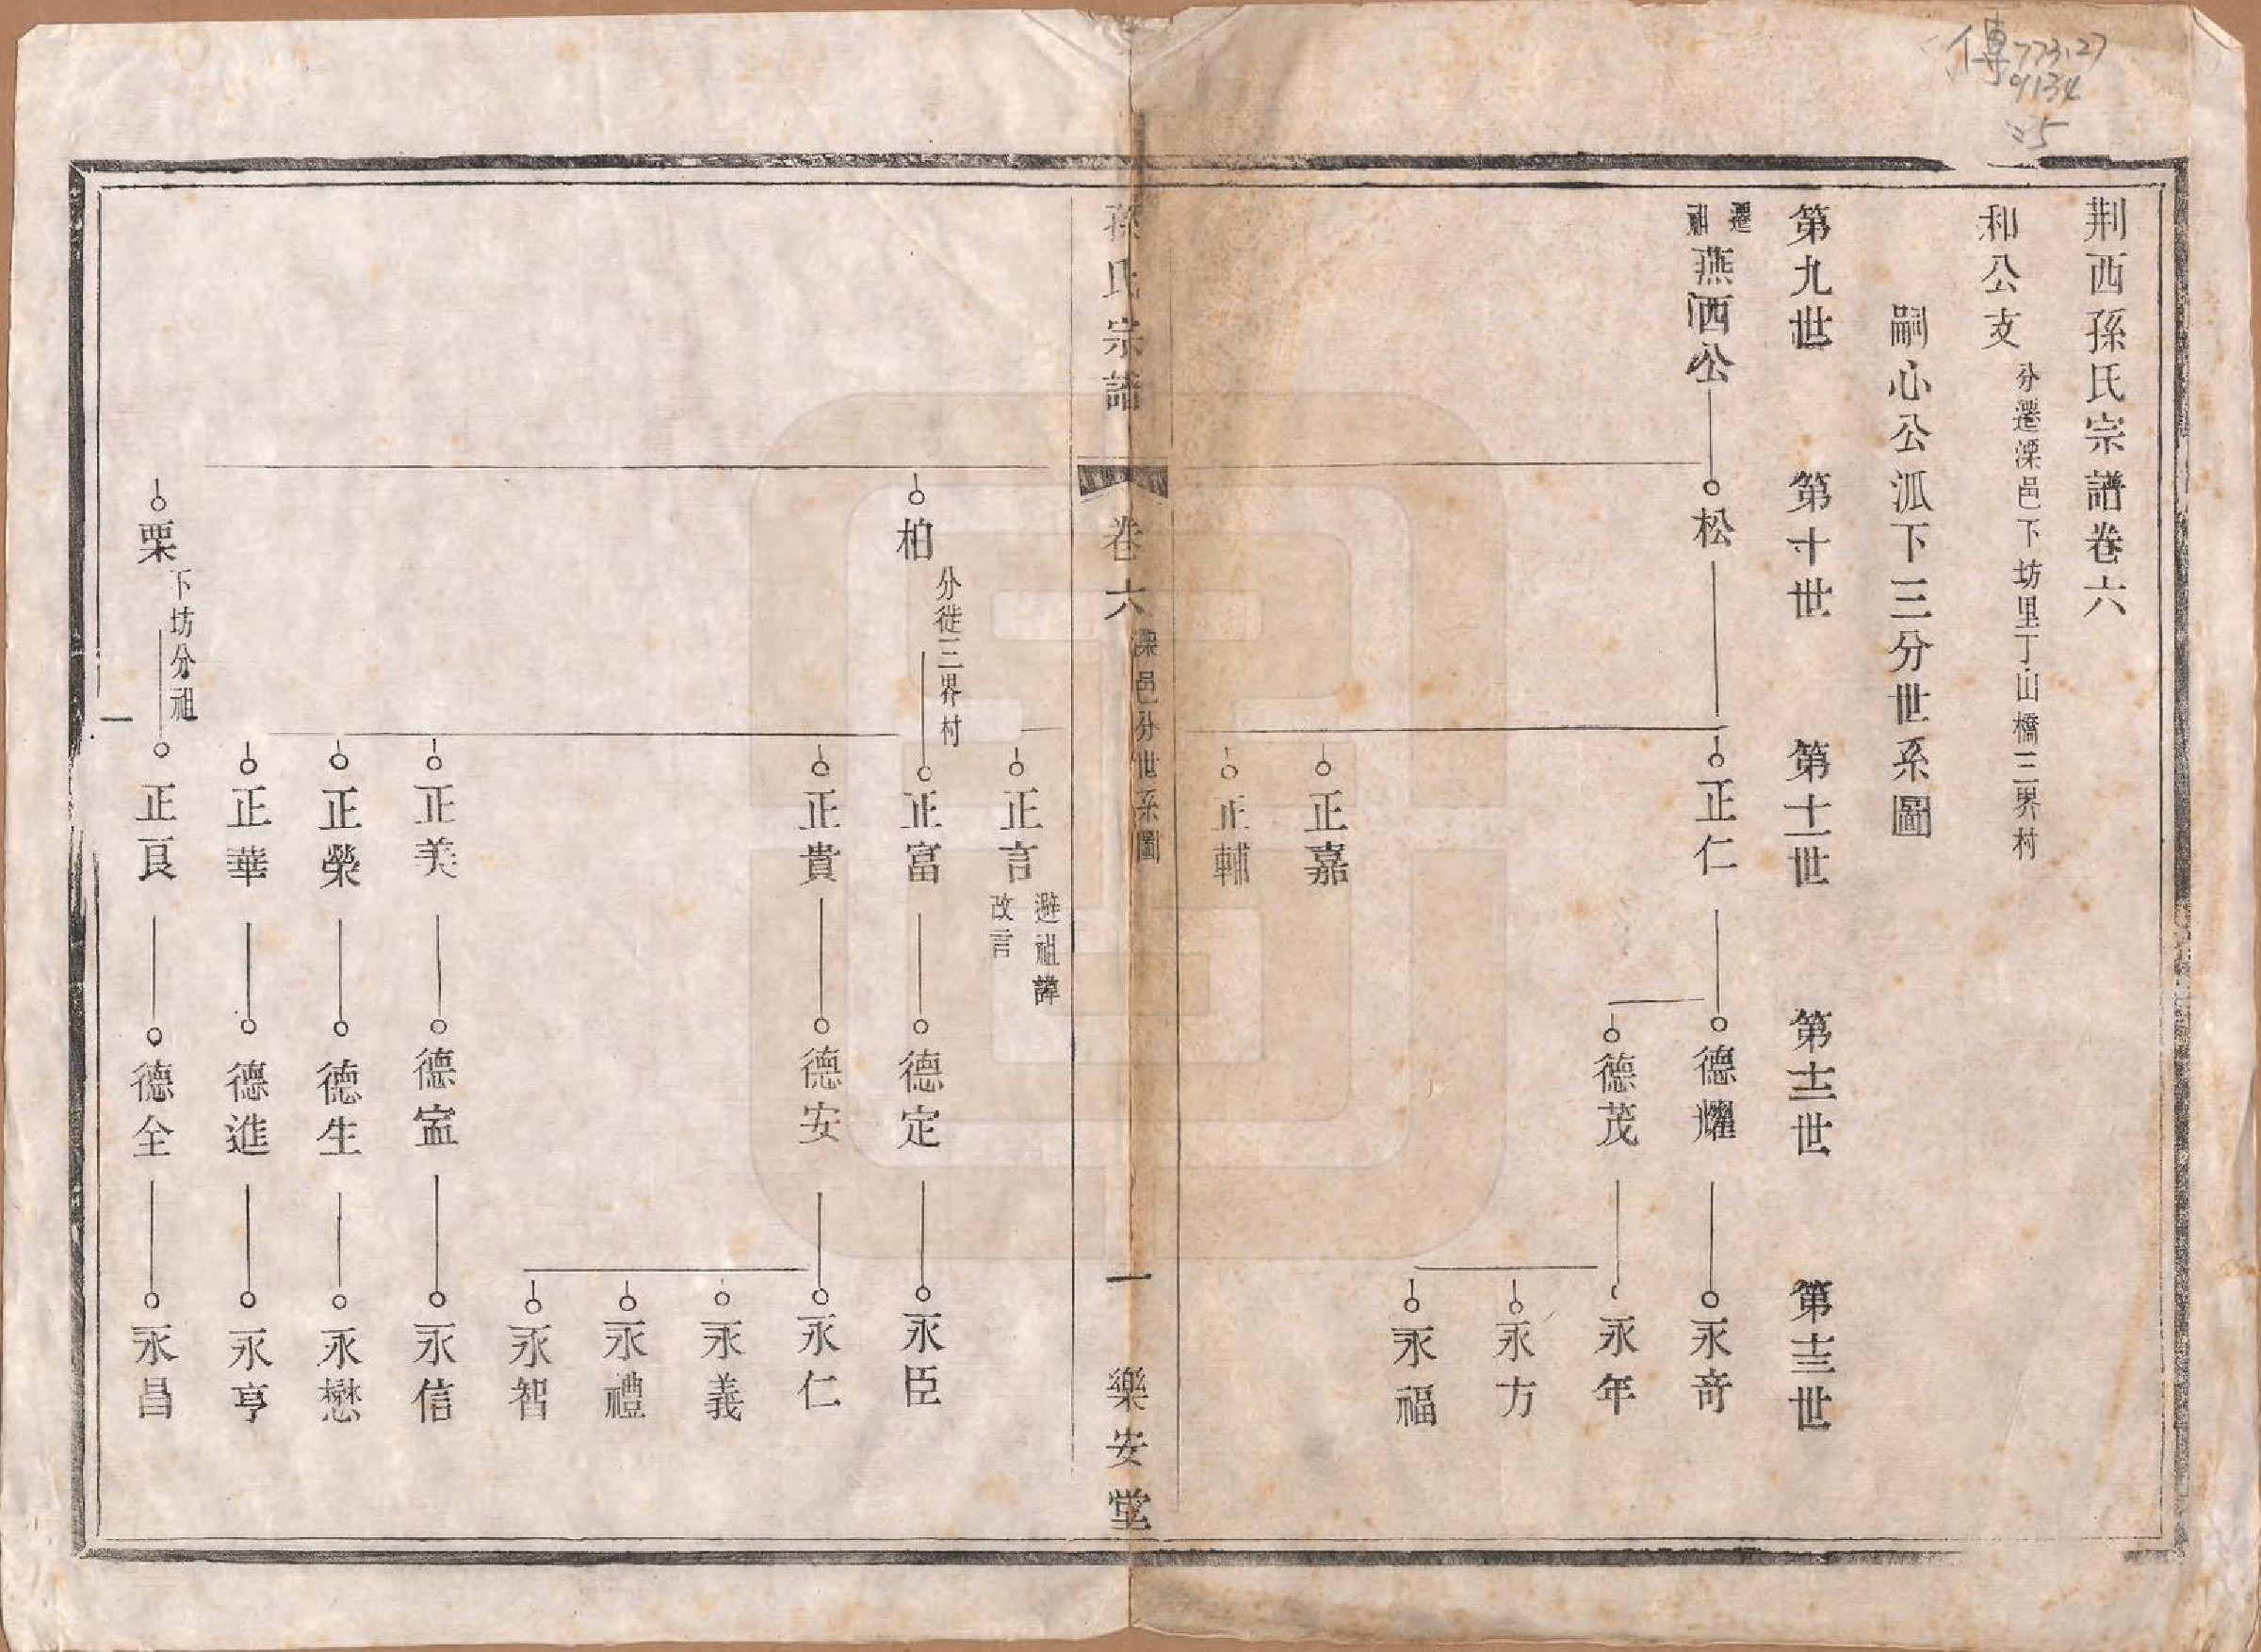 傳773.27
9134
:5
荆西孫氏宗譜卷六
和公支 分遷溧邑下坊里丁山橋三界村
嗣心公派下三分世系圖
第九世 第十世 第十一世 第十二世 第十三世
遷祖 燕西公 松 正仁 德耀 永竒
德茂 永年
永方
永福
正嘉
正輔
孫氏宗譜 卷六 溧邑分世系圖 一 樂安堂
正言 避祖諱改言
柏 分徙三界村 正富 德定 永臣
正貴 德安 永仁
永義
永禮
永智
正美 德寍 永信
正榮 德生 永懋
正華 德進 永亨
栗 下坊分祖 正良 德全 永昌
一